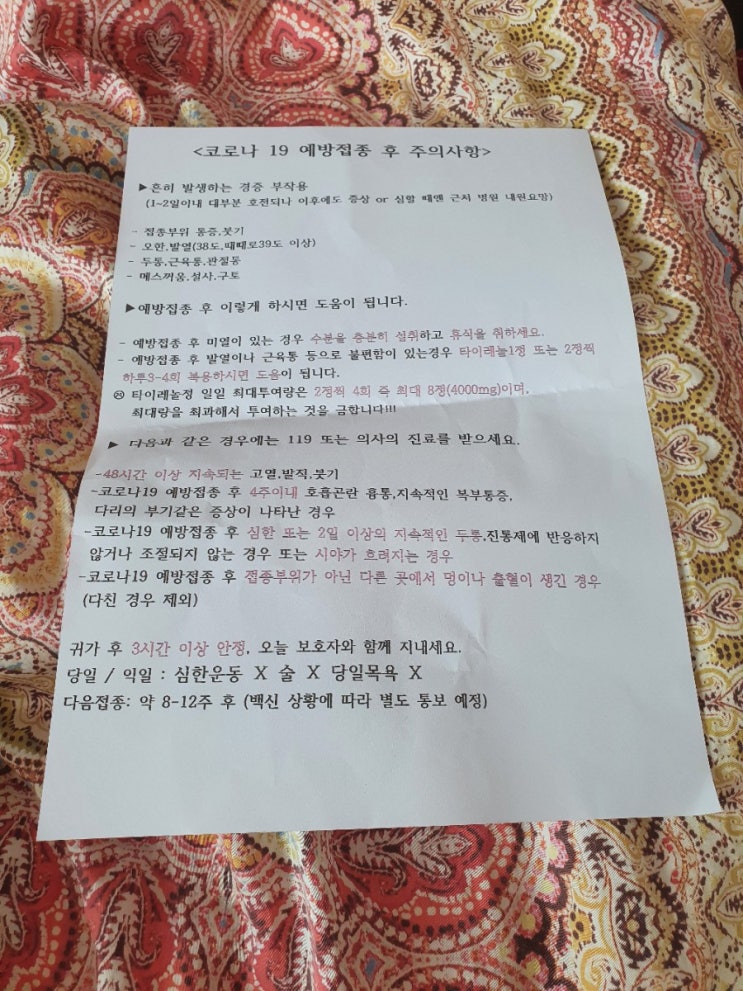 <코로나 19 예방접종 후 주의사항>
▶흔히 발생하는 경증 부작용
(1~2일이내 대부분 호전되나 이후에도 증상 or 심할 때엔 근처 병원 내원요망)
- 접종부위 통증,붓기
- 오한,발열(38도,때때로39도 이상)
- 두통,근육통,관절통
- 메스꺼움,설사,구토
▶예방접종 후 이렇게 하시면 도움이 됩니다.
- 예방접종 후 미열이 있는 경우 수분을 충분히 섭취하고 휴식을 취하세요.
- 예방접종 후 발열이나 근육통 등으로 불편함이 있는경우 타이레놀1정 또는 2정씩
하루3-4회 복용하시면 도움이 됩니다.
타이레놀정 일일 최대투여량은 2정씩 4회 즉 최대 8정(4000mg)이며,
최대량을 최과해서 투여하는 것을 금합니다!!!
▶ 다음과 같은 경우에는 119 또는 의사의 진료를 받으세요.
-48시간 이상 지속되는 고열,발직,붓기
-코로나19 예방접종 후 4주이내 호흡곤란 흉통,지속적인 복부통증,
다리의 부기같은 증상이 나타난 경우
-코로나19 예방접종 후 심한 또는 2일 이상의 지속적인 두통,진통제에 반응하지
않거나 조절되지 않는 경우 또는 시야가 흐려지는 경우
-코로나19 예방접종 후 접종부위가 아닌 다른 곳에서 멍이나 출혈이 생긴 경우
(다친 경우 제외)
귀가 후 3시간 이상 안정, 오늘 보호자와 함께 지내세요.
당일 / 익일 : 심한운동 X 술 X 당일목욕 X
다음접종: 약 8-12주 후 (백신 상황에 따라 별도 통보 예정)